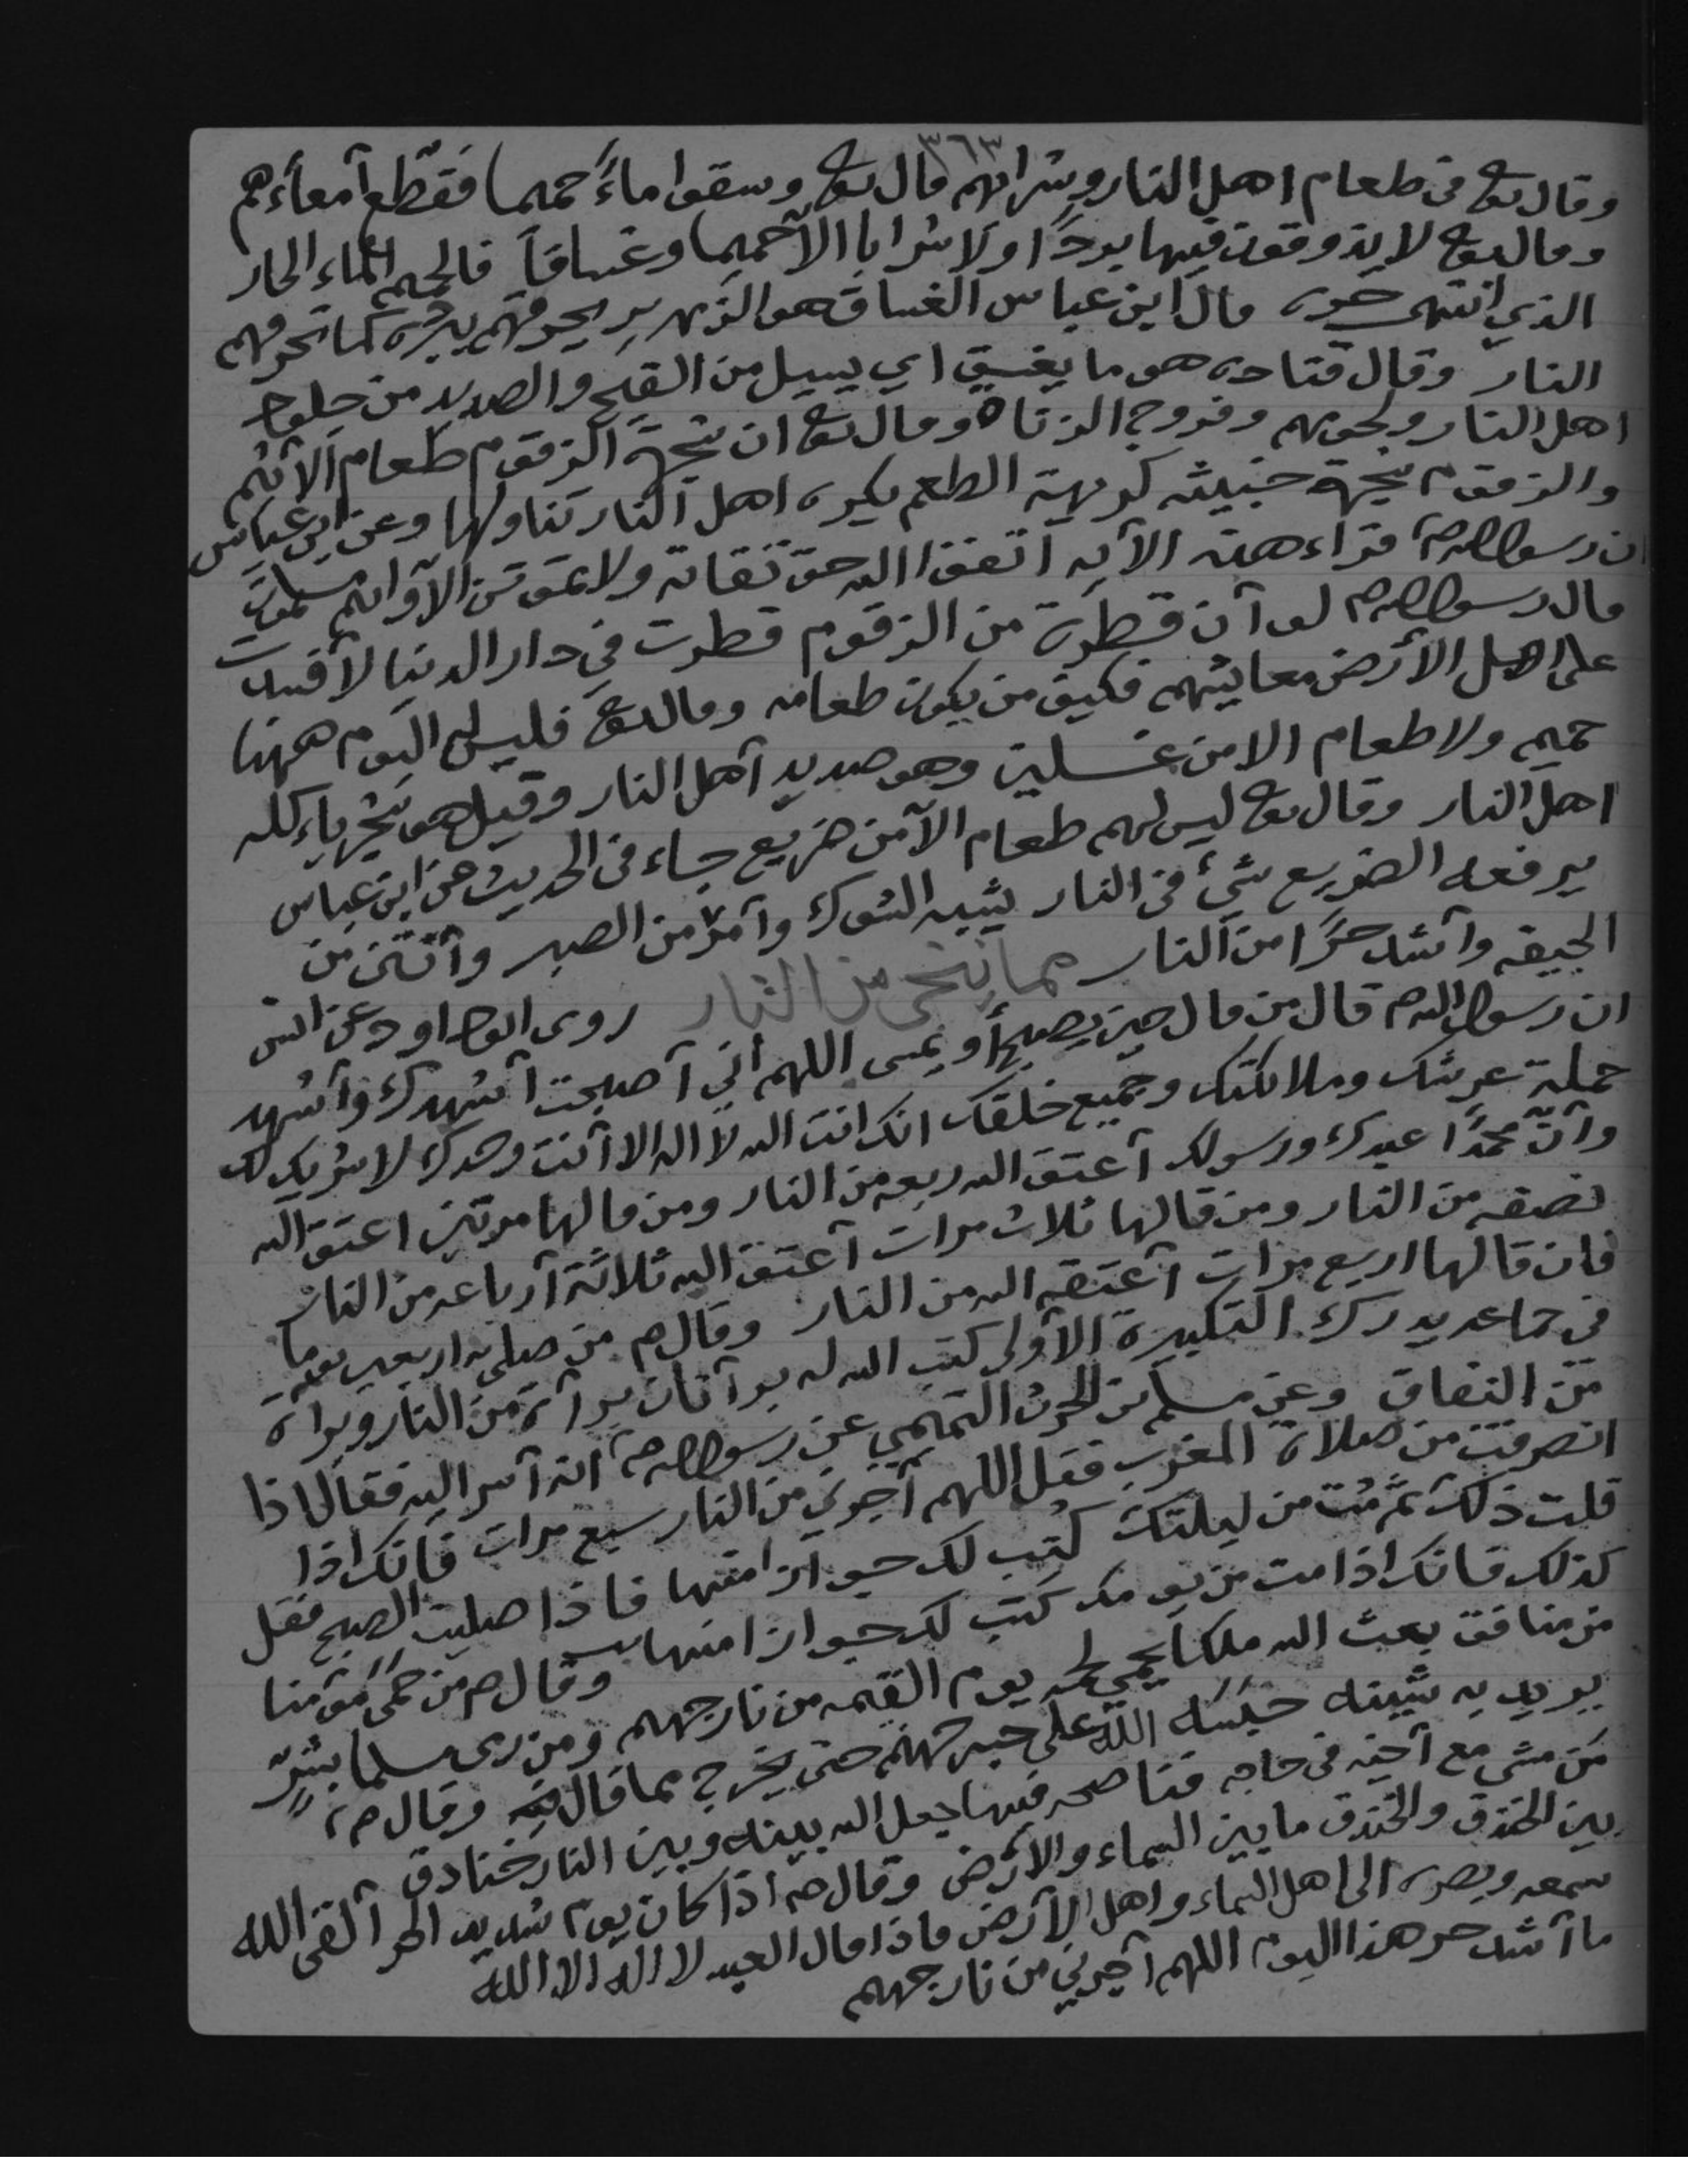 ٣٦٣
وقال تع في طعام اهل النار وشرابهم قال تع وسقوا ماءً حميما فقطّع أمعاءهم
وقال تع لا يذوقون فيها بردًا ولا شرابا الّا حميما وغساقاً فالحميم الماء الحار
الذي انتهى حره قال ابن عباس الغساق هو الزمهرير يحرقهم ببرده كما تحرقهم
النار وقال قتاده هو ما يغسق اي يسيل من القيح والصديد من جلود
اهل النار ولحومهم وفروج الزناة وقال تع ان شجرة الزقوم طعام الاثيم
والزقوم شجرة خبيثه كريهة الطعم يكره اهل النار تناولها وعن ابن عباس
ان رسول الله ص قراء هذه الآيه اتقوا الله حق تقاته ولا تموتن الّا وانتم مسلمون
قال رسول الله ص لو أن قطرة من الزقوم قطرت في دار الدنيا لأفسدت
على اهل الأرض معايشهم فكيف من يكون طعامه وقال تع فليس له اليوم ههنا
حميم ولا طعام الا من غسلين وهو صديد أهل النار وقيل هو شجر ياءكله
اهل النار وقال تع ليس لهم طعام الّا من ضريع جاء في الحديث عن ابن عباس
يرفعه الضريع شيء في النار يشبه الشوك وأمرّ من الصبر وأنتن من
الجيفه وأشد حرًا من النار مما ينجي من النار روى ابو داود عن انس
ان رسول الله ص قال من قال حين يصبح أو يمسى اللهم اني أصبحت أشهدك وأشهد
حملة عرشك وملائكتك وجميع خلقك انك انت الله لا اله الا أنت وحدك لا شريك لك
وأنّ محمدًا عبدك ورسولك أعتق الله ربعه من النار ومن قالها مرتين اعتق الله
نصفه من النار ومن قالها ثلاث مرات أعتق الله ثلاثة أرباعه من النار
فان قالها اربع مرات أعتقه الله من النار وقال ص من صلى لله اربعين يوما
في جماعه يدرك التكبيرة الأولى كتب الله له برأتان برأة من النار وبراة
من النفاق وعن مسلم بن الحرث التميمي عن رسول الله ص انه أسر اليه فقال اذا
انصرفت من صلاة المغرب فقل اللهم أجرني من النار سبع مرات فأنك اذا
قلت ذلك ثم مُت من ليلتك كُتب لك جوار منها فاذا صليت الصبح فقل
كذلك فانك اذا مت من يومك كتب لك جوار منها وقال ص من حمى مؤمنا
من منافق بعث الله ملكا يحمي لحمه يوم القيمه من نار جهنم ومن رمى مسلما بشيء
يريد به شينه حبسه الله على جسر جهنم حتى يخرج مما قال فيه وقال ص
من مشى مع أخيه في حاجه فناصحه فيها جعل الله بينه وبين النار خنادق
بين الخندق والخندق ما بين السماء والأرض وقال ص اذا كان يوم شديد الحر ألقى الله
سمعه وبصره الى اهل السماء واهل الأرض فاذا قال العبد لا اله الا الله
ما أشد حر هذا اليوم اللهم أجرني من نار جهنم